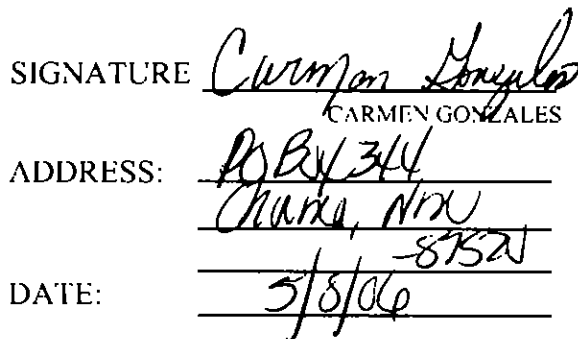 SIGNATURE Carmen Gonzales
CARMEN GONZALES
ADDRESS: PO Box 344
Chama, NM
87520
DATE: 5/8/06